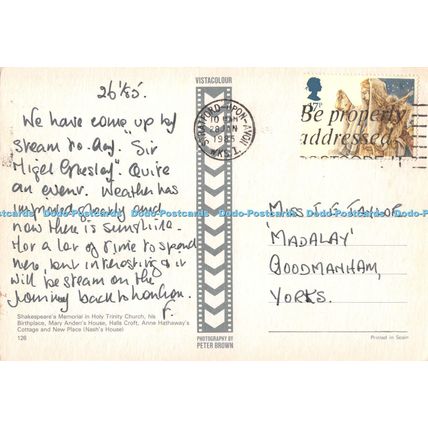 26/1/85.
We have come up by
steam to-day. "Sir
Nigel Gresley" Quite
an event. Weather has
improved greatly and
now there is sunshine.
Not a lot of time to spend
here, but interesting & it
will be steam on the
journey back to London.
F.
Shakespeare's Memorial in Holy Trinity Church, his
Birthplace, Mary Arden's House, Halls Croft, Anne Hathaway's
Cottage and New Place (Nash's House)
126
VISTACOLOUR
PHOTOGRAPHY BY
PETER BROWN
STRATFORD-UPON-AVON
28 JAN
1985
WKS
17P
Be properly
addressed
MISS
'MADALAY'
GOODMANHAM,
YORKS.
Printed in Spain
Dodo-Postcards Dodo-Postcards Dodo-Postcards Dodo-Postcards Dodo-Postcards